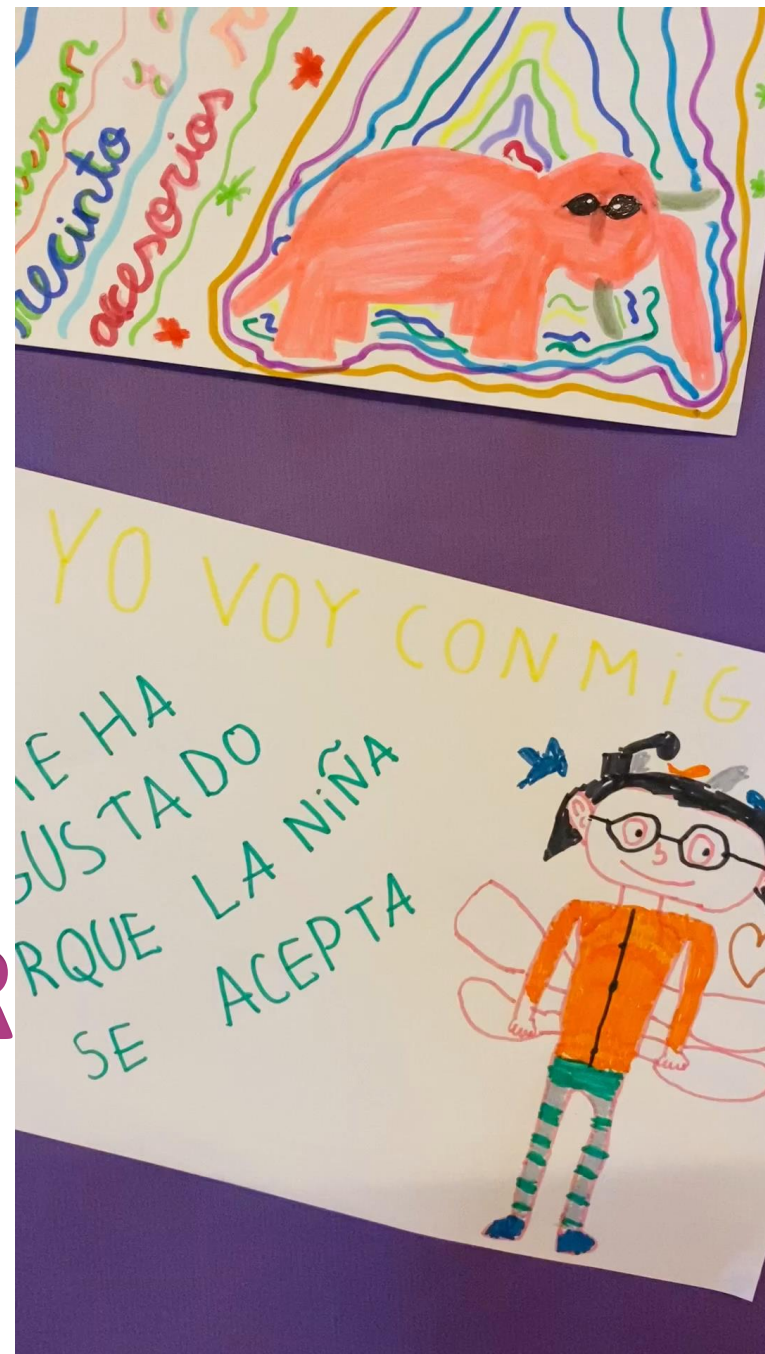 recinto
acesorios
YO VOY CONMIG
HA
GUSTADO
RQUE LA NIÑA
SE ACEPTA
R